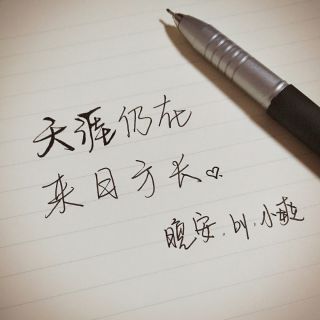 天涯仍在
来日方长♡
晚安.by.小